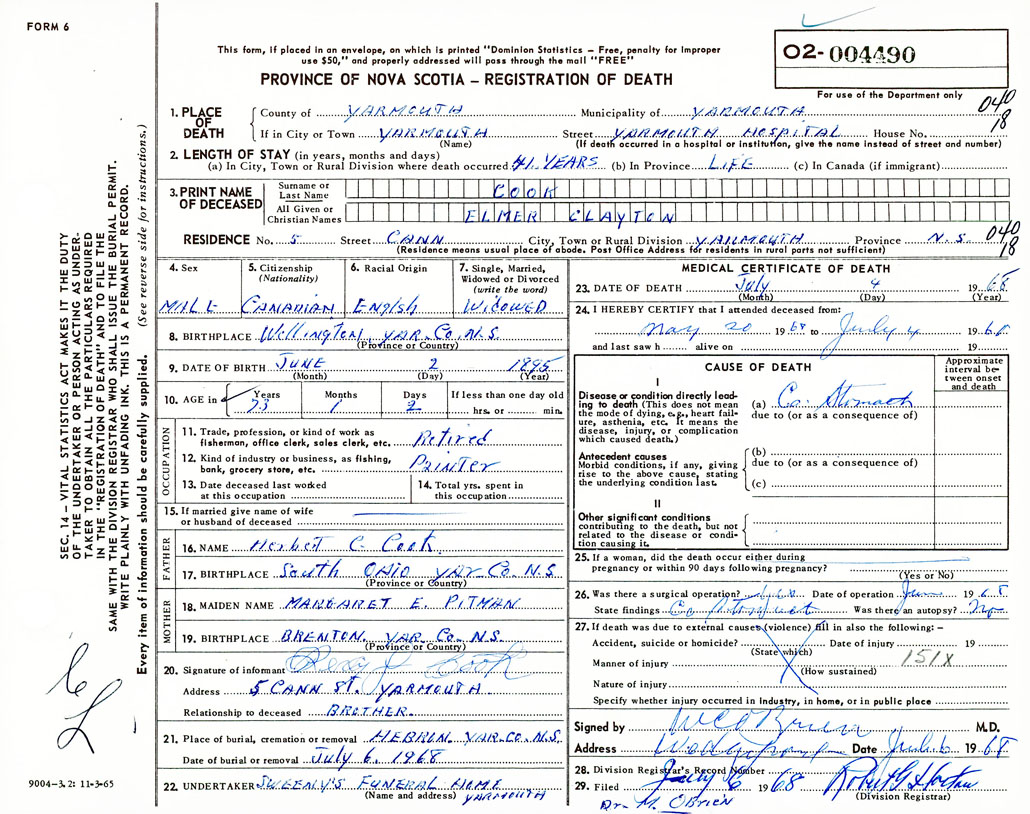 FORM 6
This form, if placed in an envelope, on which is printed "Dominion Statistics – Free, penalty for improper
use $50," and properly addressed will pass through the mail "FREE"
02-004490
For use of the Department only
PROVINCE OF NOVA SCOTIA – REGISTRATION OF DEATH
1. PLACE OF DEATH { County of YARMOUTH Municipality of YARMOUTH 040
If in City or Town YARMOUTH Street YARMOUTH HOSPITAL House No. 18
(Name) (If death occurred in a hospital or institution, give the name instead of street and number)
2. LENGTH OF STAY (in years, months and days)
(a) In City, Town or Rural Division where death occurred 41 YEARS (b) In Province LIFE (c) In Canada (if immigrant)
3. PRINT NAME OF DECEASED { Surname or Last Name COOK
All Given or Christian Names ELMER CLAYTON
RESIDENCE No. 5 Street CANN City, Town or Rural Division YARMOUTH Province N.S. 040
(Residence means usual place of abode. Post Office Address for residents in rural parts not sufficient) 18
4. Sex MALE
5. Citizenship (Nationality) CANADIAN
6. Racial Origin ENglsh
7. Single, Married, Widowed or Divorced (write the word) WIDOWED
8. BIRTHPLACE Wellington YAR. Co. N.S.
(Province or Country)
9. DATE OF BIRTH JUNE 2 1895
(Month) (Day) (Year)
10. AGE in { Years Months Days If less than one day old
73 1 2 hrs. or min.
OCCUPATION
11. Trade, profession, or kind of work as
fisherman, office clerk, sales clerk, etc. Retired
12. Kind of industry or business, as fishing,
bank, grocery store, etc. PAINTER
13. Date deceased last worked
at this occupation
14. Total yrs. spent in
this occupation
15. If married give name of wife
or husband of deceased
FATHER
16. NAME Herbert C. Cook
17. BIRTHPLACE South OHIO YAR. Co. N.S
(Province or Country)
MOTHER
18. MAIDEN NAME MARGARET E. PITMAN
19. BIRTHPLACE BRENTON. YAR Co. N.S.
(Province or Country)
20. Signature of informant Percy J Cook
Address 5 CANN ST. YARMOUTH
Relationship to deceased BROTHER.
21. Place of burial, cremation or removal HEBRON YAR. CO. N.S.
Date of burial or removal July 6, 1968
22. UNDERTAKER SWEENY'S FUNERAL HOME
(Name and address) YARMOUTH
MEDICAL CERTIFICATE OF DEATH
23. DATE OF DEATH July 4 1968
(Month) (Day) (Year)
24. I HEREBY CERTIFY that I attended deceased from:
May 20 1968 to July 4 1968
and last saw h alive on 19
CAUSE OF DEATH
Approximate interval between onset and death
I
Disease or condition directly leading to death (This does not mean the mode of dying, e.g., heart failure, asthenia, etc. It means the disease, injury, or complication which caused death.)
(a) Ca. Stomach
due to (or as a consequence of)
Antecedent causes
Morbid conditions, if any, giving rise to the above cause, stating the underlying condition last.
(b)
due to (or as a consequence of)
(c)
II
Other significant conditions
contributing to the death, but not related to the disease or condition causing it.
25. If a woman, did the death occur either during
pregnancy or within 90 days following pregnancy?
(Yes or No)
26. Was there a surgical operation? Date of operation June 1968
State findings Ca Stomach Was there an autopsy? No
27. If death was due to external causes (violence) fill in also the following: –
Accident, suicide or homicide? Date of injury 19
(State which)
Manner of injury 151X
(How sustained)
Nature of injury
Specify whether injury occurred in industry, in home, or in public place
Signed by M.D.
Address Date July 6 1968
28. Division Registrar's Record Number
29. Filed July 6 1968
(Division Registrar)
Dr. M. O'BRIEN
SEC. 14 – VITAL STATISTICS ACT MAKES IT THE DUTY
OF THE UNDERTAKER OR PERSON ACTING AS UNDER-
TAKER TO OBTAIN ALL THE PARTICULARS REQUIRED
IN THE "REGISTRATION OF DEATH" AND TO FILE THE
SAME WITH THE DIVISION REGISTRAR WHO SHALL ISSUE THE BURIAL PERMIT.
WRITE PLAINLY WITH UNFADING INK. THIS IS A PERMANENT RECORD.
Every item of information should be carefully supplied. (See reverse side for instructions.)
9004-3.2: 11-3-65